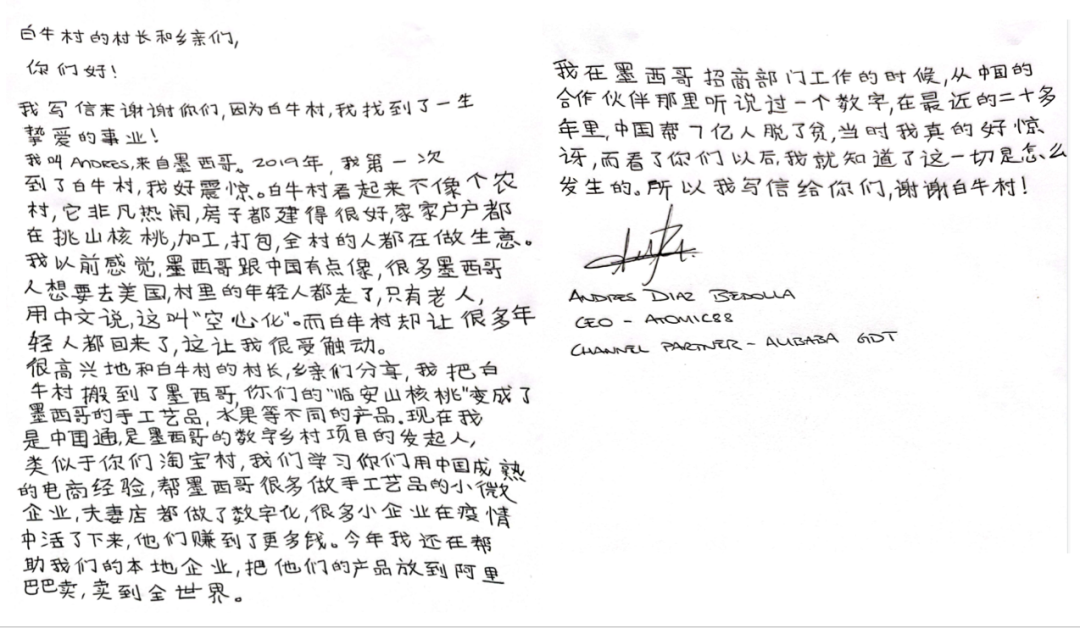 白牛村的村长和乡亲们,
你们好!
我写信来谢谢你们,因为白牛村,我找到了一生
挚爱的事业!
我叫ANDRES,来自墨西哥。2019年,我第一次
到了白牛村,我好震惊。白牛村看起来不像个农
村,它非凡热闹,房子都建得很好,家家户户都
在挑山核桃,加工,打包,全村的人都在做生意。
我以前感觉,墨西哥跟中国有点像,很多墨西哥
人想要去美国,村里的年轻人都走了,只有老人,
用中文说,这叫“空心化”。而白牛村却让很多年
轻人都回来了,这让我很受触动。
很高兴地和白牛村的村长,乡亲们分享,我把白
牛村搬到了墨西哥,你们的“临安山核桃”变成了
墨西哥的手工艺品,水果等不同的产品。现在我
是中国通,是墨西哥的数字乡村项目的发起人,
类似于你们淘宝村,我们学习你们用中国成熟
的电商经验,帮墨西哥很多做手工艺品的小微
企业,夫妻店都做了数字化,很多小企业在疫情
中活了下来,他们赚到了更多钱。今年我还在帮
助我们的本地企业,把他们的产品放到阿里
巴巴卖,卖到全世界。
我在墨西哥招商部门工作的时候,从中国的
合作伙伴那里听说过一个数字,在最近的二十多
年里,中国帮7亿人脱了贫,当时我真的好惊
讶,而看了你们以后,我就知道了这一切是怎么
发生的。所以我写信给你们,谢谢白牛村!
ANDRES DIAZ BEDOLLA
CEO - ATOMIC88
CHANNEL PARTNER - ALIBABA GDT